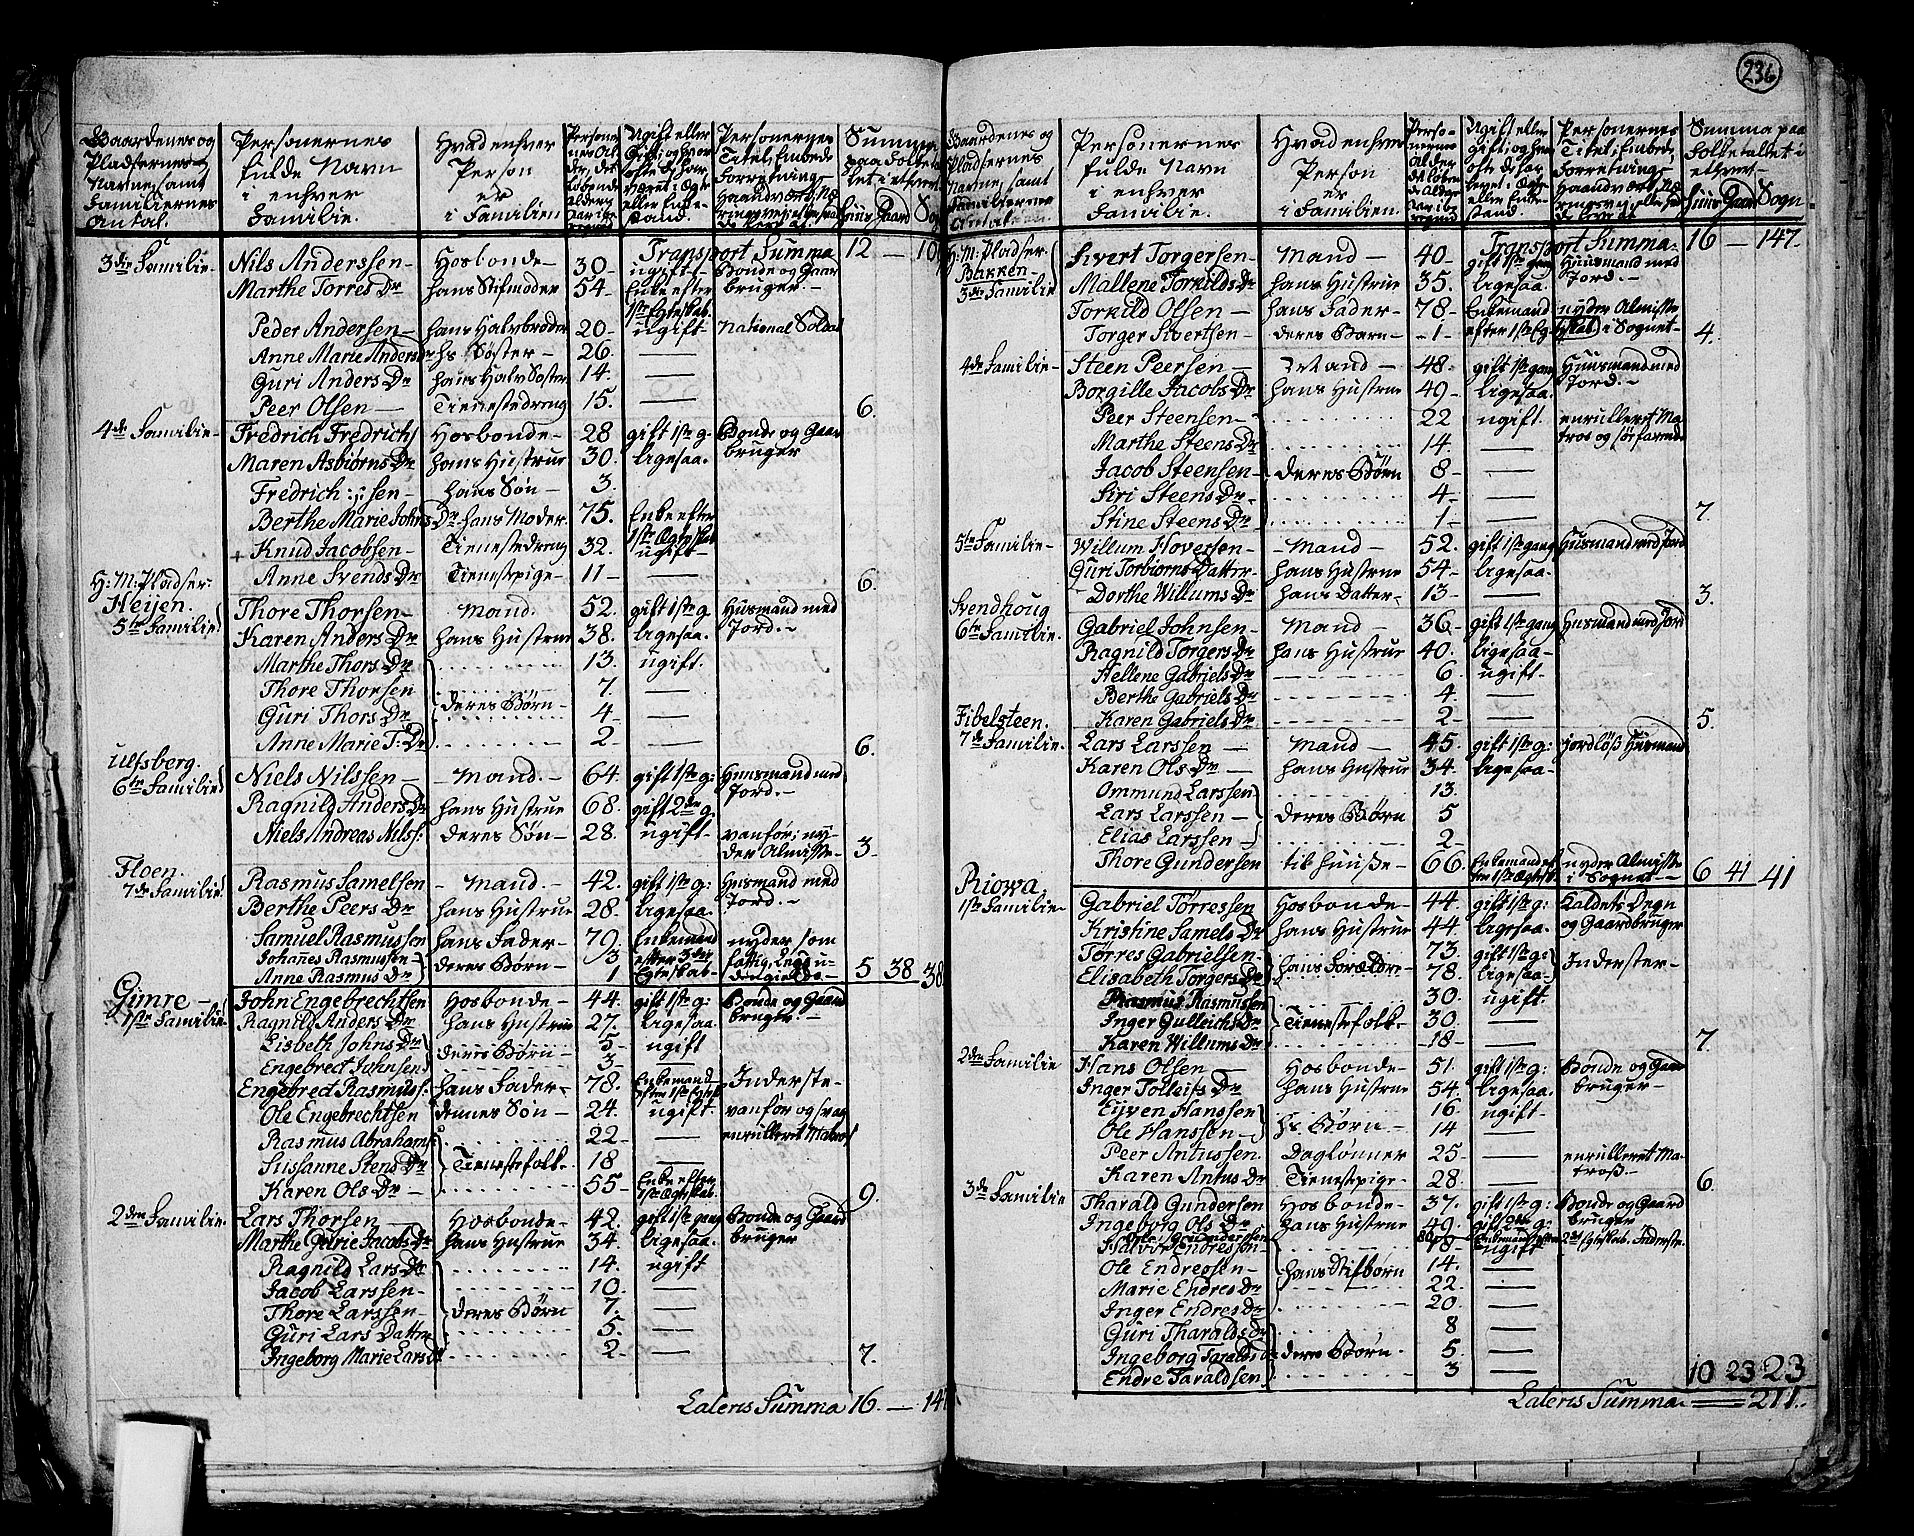 236
Gaardenes og Pladsernes Navne, samt Familiernes Antal. | Personernes fulde Navn i enhver Familie. | Hvad enhver Person er i Familien
3die Familie. | Nils Anderssen | Hosbonde | 30 | ugift | Bonde og Gaar | Transport Summa 12
Marthe Torres Dr | hans Stifmoder | 54 | Enke efter 1ste Egteskab. | bruger
Peder Andersen | hans Halvbroder | 20 | ugift | National Soldat
Anne Marie Anders Dr | hs Søster | 26. | —
Guri Anders Dr | hans Halv Søster | 14. | —
Peer Olsen | Tienestedreng | 15. | — | 6.
4de Familie | Fredrich Fredrichs | Hosbonde | 28 | gift 1ste g. | Bonde og Gaar
Maren Asbiørns Dr | hans Hustrue | 30. | ligesaa. | bruger
Fredrich :/: sen | hans Søn | 3.
Berthe Marie Johns Dr | hans Moder. | 75. | Enke efter 1ste Egteskab
+ Knud Jacobsen | Tienestedreng | 32. | ugift
Anne Svends Dr | Tienestepige | 11 | — | 6.
H: M: Pladser:
Heijen.
5te Familie | Thore Thorsen | Mand. | 52. | gift 1ste g. | Husmand med
Karen Anders Dr | hans Hustrue | 38. | ligesaa. | Jord.
Marthe Thors Dr | 13. | ugift.
Thore Thorsen | deres Børn | 7. | —
Guri Thors Dr | 4 | —
Anne Marie T: Dr | 2 | — | 6.
Ulfsberg.
6te Familie | Niels Nilssen | Mand. | 64. | gift 1ste g: | Huusmand med
Ragnild Anders Dr | hans Hustrue | 68. | gift 2den g: | Jord.
Niels Andreas Nilss: | deres Søn | 28. | ugift | vanfør; nyder Almisse | 3
Floen.
7de Familie | Rasmus Samelsen | Mand. | 42. | gift 1ste g: | Husmand med
Berthe Peers Dr | hans Hustrue | 28. | ligesaa. | Jord.
Samuel Rasmussen | hans Fader | 79. | Enkemand efter 3die Egteskab | nyder som fattig
Johañes Rasmusen | deres Børn | 3
Anne Rasmus Dr | 1 | 5 38 38
Gimre
1ste Familie | John Engebrechtsen | Hosbonde | 44. | gift 1ste g: | Bonde og Gaard
Ragnild Anders Dr | hans Hustrue | 27. | ligesaa. | bruger.
Lisbeth Johns Dr | deres Børn | 5 | ugift
Engebret Johnsen | 3
Engebrect Rasmuss: | hans Fader | 78. | Enkemand efter 1ste Egtesk | Inderste
Ole Engebrechtsen | dennes Søn | 24. | ugift | vanfør og svag
Rasmus Abrahams: | 22 | — | enrulleret Matros
Susanne Stens Dr | Tienestefolk. | 18 | —
Karen Ols Dr | 55 | Enke efter 1ste Egteskab. | 9.
2den Familie. | Lars Thorsen | Hosbonde | 42. | gift 1ste gang | Bonde og Gaard
Marthe Jacobs Dr | hans Hustrue | 34. | ligesaa. | bruger
Ragnild Lars Dr | 14. | ugift
Jacob Larssen | 10. | —
Thore Larssen | deres Børn | 7. | —
Guri Lars Datter | 5. | —
Ingeborg Marie Lars Dr | 2 | — | 7.
Lateris Summa 16.
Gaardenes og Pladsernes Navne, samt Familiernes Antal. | Personernes fulde Navn i enhver Familie. | Hvad enhver Person er i Familien. | Summa paa Folketallet i ethvert
Transport Summa: 16 — 147.
H: M: Pladser
Bakken
3die Familie | Sivert Torgersen | Mand | 40 | gift 1ste gang | Huusmand med
Mallene Torkilds Dr | hans Hustrue | 35. | ligesaa. | Jord.
Torkild Olsen | hans Fader | 78 | Enkemand | nyder Almisse
Torger Sivertsen | deres Barn | 1 | efter 1ste Eg | i Sognet | 4.
4de Familie | Steen Peersen | Mand | 48. | gift 1ste gang | Huusmand med
Borgille Jacobs Dr | hans Hustrue | 49 | ligesaa. | Jord.
Peer Steensen | 22 | ugift. | enrulleret Ma
Marthe Steens Dr | 14. | — | tros og søefarende
Jacob Steensen | deres Børn | 8 | —
Siri Steens Dr | 4 | —
Stine Steens Dr | 1 | — | 7.
5te Familie | Willum Hoversen | Mand | 52. | gift 1ste gang | Husmand med Jord
Guri Torbiørns Datter | hans Hustrue | 54 | ligesaa.
Dorthe Willums Dr | hans Datter | 13 | — | 3.
Svendhoug
6te Familie. | Gabriel Johnsen | Mand | 36 | gift 1ste gang | Husmand med Jord
Ragnild Torgers Dr | hans Hustrue | 40. | ligesaa
Hellene Gabriels Dr | 6. | ugift.
Berthe Gabriels Dr | 4. | —
Karen Gabriels Dr | 2 | — | 5.
Fibelsteen.
7de Familie. | Lars Larssen | Mand | 45. | gift 1ste g: | jordløß Husmand
Karen Ols Dr | hans Hustrue | 34. | ligesaa
Ommund Larssen | 13.
Lars Larssen | deres Børn | 5
Elias Larssen | 2
Thore Gundersen | til huuse | 66. | nyder Almisse i Sognet | 6 41 41
Riowa.
1ste Familie | Gabriel Tørressen | Hosbonde | 44. | gift 1ste g: | Kaldets Degn
Kristine Samels Dr | hans Hustrue | 44 | ligesaa. | og Gaardbruger
Tørres Gabrielsen | hans Forældre | 73. | gift 1ste g: | Inderster
Elisabeth Torgers Dr | 78. | ligesaa
Rasmus Rasmussen | 30. | ugift.
Inger Gulleichs Dr | Tienestefolk. | 30. | —
Karen Willums Dr | 18 | — | 7
2den Familie | Hans Olsen | Hosbonde | 51. | gift 1ste g: | Bonde og Gaar
Inger Tolleifs Dr | hans Hustrue | 54. | ligesaa. | bruger
Eiven Hanssen | hs Børn. | 16. | ugift
Ole Hanssen | 14 | —
Peer Antussen. | Daglønner | 25 | — | enrulleret Ma
Karen Antus Dr | Tienestepige | 28. | — | troß. | 6.
3die Familie | Tharald Gundersen | Hosbonde | 37. | gift 1ste g: | Bonde og Gaard
Ingeborg Ols Dr | hans Hustrue | 49. | gift 2den g: | bruger
Halvor Endressen | 18 | ugift
Ole Endresen | hans Stifbørn | 14. | —
Marie Endres Dr | 22. | —
Inger Endres Dr | 20. | —
Guri Tharalds Dr | 8 | —
Ingeborg Taralds Dr | deres Børn. | 5. | —
Endre Taraldsen | 3 | — | 10 23 23
Lateris Summa. 211.